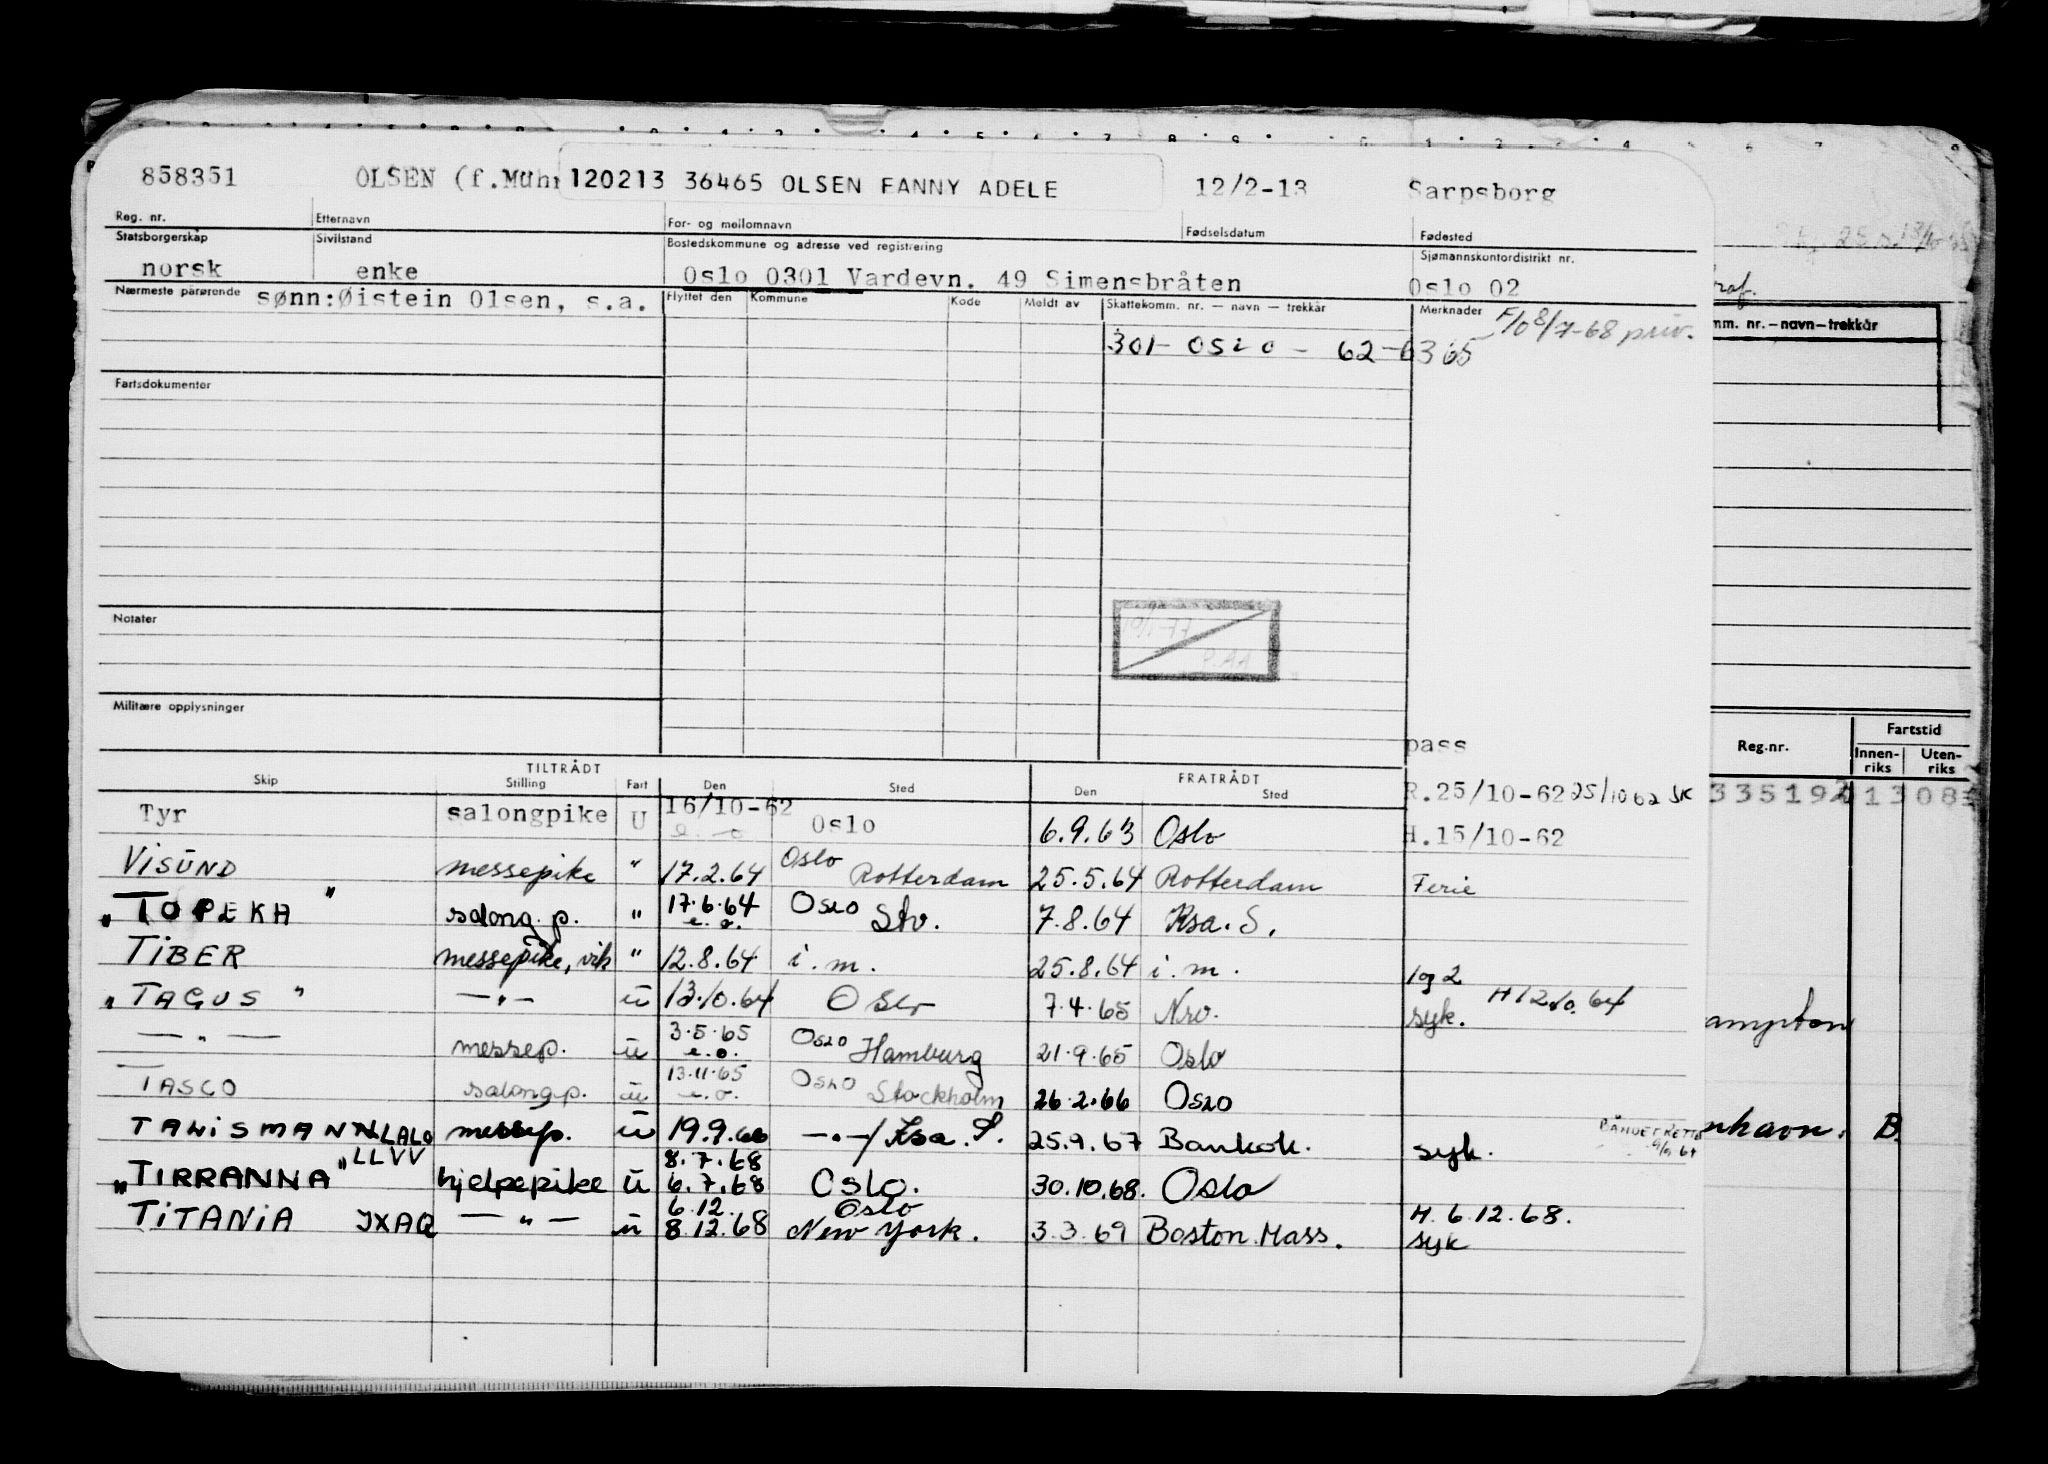 858351 OLSEN (f. 120213 36465 OLSEN FANNY ADELE 12/2-13 Sarpsborg
Reg. nr. Etternavn For- og mellomnavn Fødselsdatum Fødested
Statsborgerskap Sivilstand Bostedskommune og adresse ved registrering Sjømannskontordistrikt nr.
norsk enke Oslo 0301 Vardevn. 49 Simensbråten Oslo 02
Nærmeste pårørende sønn:Øistein Olsen, s.a. Flyttet den Kommune Kode Meldt av Skattekomm. nr. — navn — trekkår Merknader F/O 8/7-68 priv.
mm. nr.–navn–trekkår
301- OSLO - 62-63 65
Fartsdokumenter
Notater
P.AA
Militære opplysninger
pass
Reg.nr. Fartstid
Innenriks Utenriks
TILTRÅDT FRATRÅDT
Skip Stilling Fart Den Sted Den Sted
R.25/10-62 25/10 62 SK
335192 1308
Tyr salongpike U 16/10-62 e.o. Oslo 6.9.63 Oslo H.15/10-62
VISUND messepike " 17.2.64 Oslo Rotterdam 25.5.64 Rotterdam Ferie
"TOPEKA" salong.p. " 17.6.64 e.o. OSLO Stv. 7.8.64 Ksa. S.
TIBER messepike, vik " 12.8.64 i.m. 25.8.64 i.m. log 2
"TAGUS" —"— u 13.10.64 Oslo 7.4.65 syk. H 12.10.64
ampton
—"— messep. u 3.5.65 e.o. OSLO Hamburg 21.9.65 Oslo
TASCO salongp. u 13.11.65 e.o. OSLO Stockholm 26.2.66 OSLO
TALISMAN LALO messep. u 19.9.66 —"—/Ksa. S. 25.9.67 Bankok. syk.
nhavn. B.
"TIRRANNA" LLVV hjelpepike u 8.7.68 6.7.68 Oslo. 30.10.68. Oslo
TITANIA JXAQ —"— u 6.12. 8.12.68 Oslo New York. 3.3.69 Boston Mass. H. 6.12.68. syk